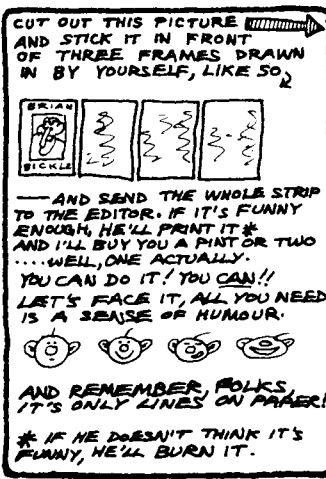 CUT OUT THIS PICTURE
AND STICK IT IN FRONT
OF THREE FRAMES DRAWN
IN BY YOURSELF, LIKE SO,
BRIAN
BICKLE
— AND SEND THE WHOLE STRIP
TO THE EDITOR. IF IT'S FUNNY
ENOUGH, HE'LL PRINT IT *
AND I'LL BUY YOU A PINT OR TWO
....WELL, ONE ACTUALLY.
YOU CAN DO IT! YOU CAN!!
LET'S FACE IT, ALL YOU NEED
IS A SENSE OF HUMOUR.
AND REMEMBER, FOLKS,
IT'S ONLY LINES ON PAPER!
* IF HE DOESN'T THINK IT'S
FUNNY, HE'LL BURN IT.